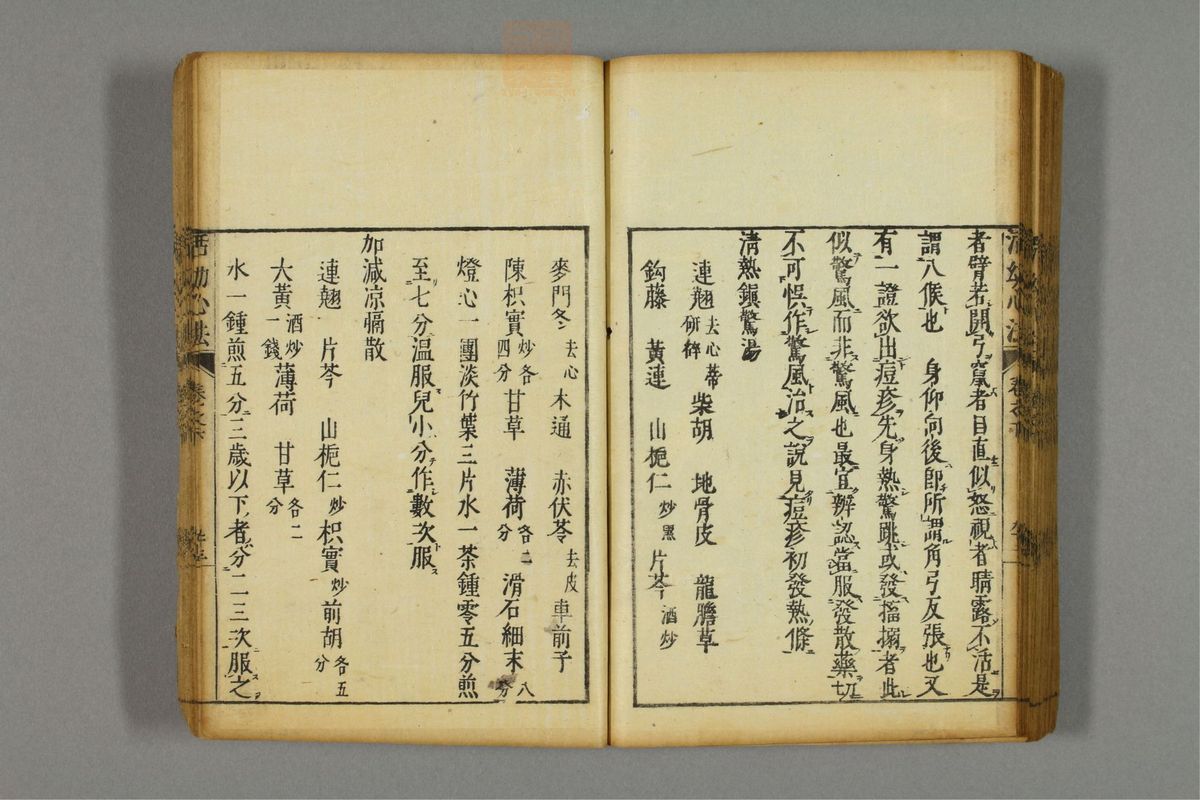 者臂若開弓竄者目直似怒視者睛露不活是
謂八候也 身仰向後即所謂角弓反張也又
有一證欲出痘疹先身熱驚跳或發搐搦者此
似驚風而非驚風也最宜辨認當服發散藥切
不可悞作驚風治之說見痘疹初發熱條
淸熱鎭驚湯
連翹去心蒂研碎 柴胡 地骨皮 龍膽草
鈎藤 黃連 山梔仁炒黑 片芩酒炒
麥門冬去心 木通 赤伏苓去皮 車前子
陳枳實炒各四分 甘草 薄荷各二分 滑石細末八分
燈心一團淡竹葉三片水一茶鍾零五分煎
至七分温服兒小分作數次服
加減凉膈散
連翹 片芩 山梔仁炒 枳實炒 前胡各五分
大黃酒炒一錢 薄荷 甘草各二分
水一鍾煎五分三歲以下者分二三次服之
活幼心法